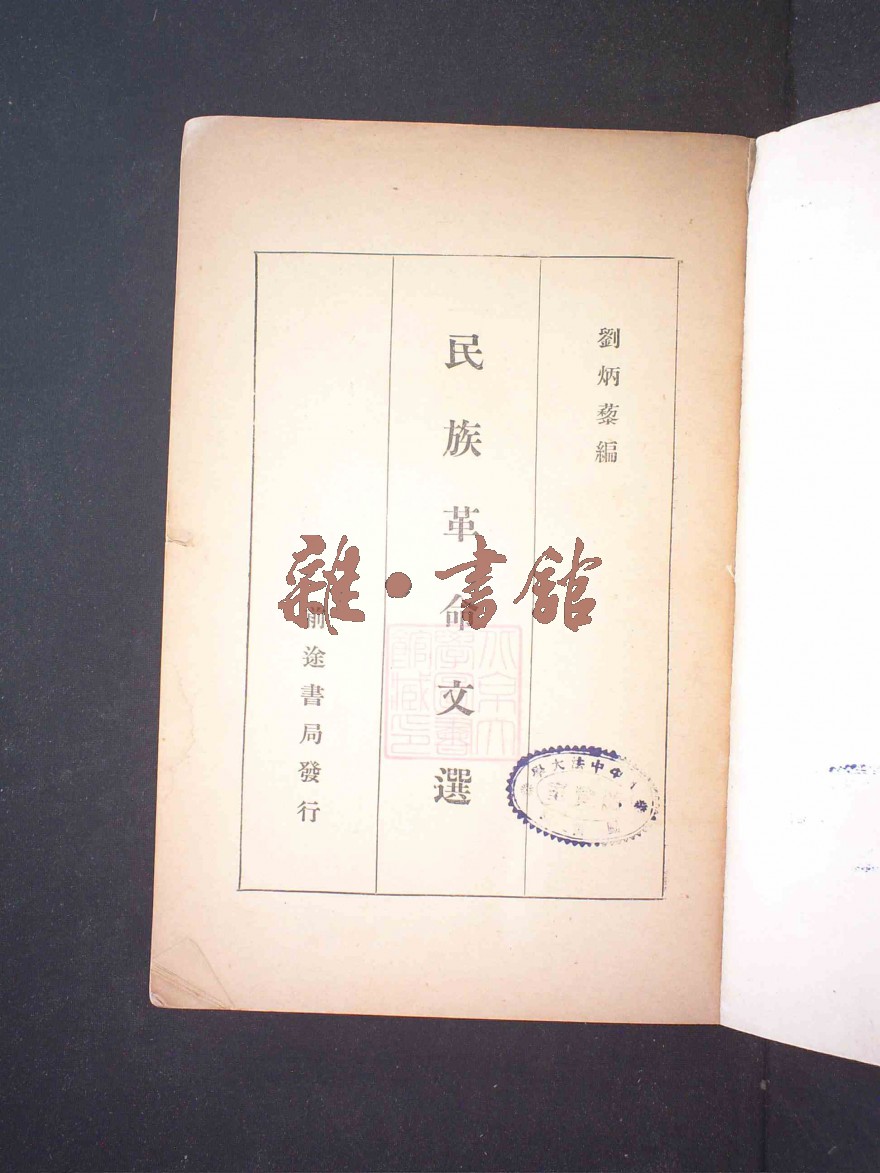 劉炳藜編
民族革命文選
前途書局發行
雜·書館
北京大
學圖書
館藏印
中法大學